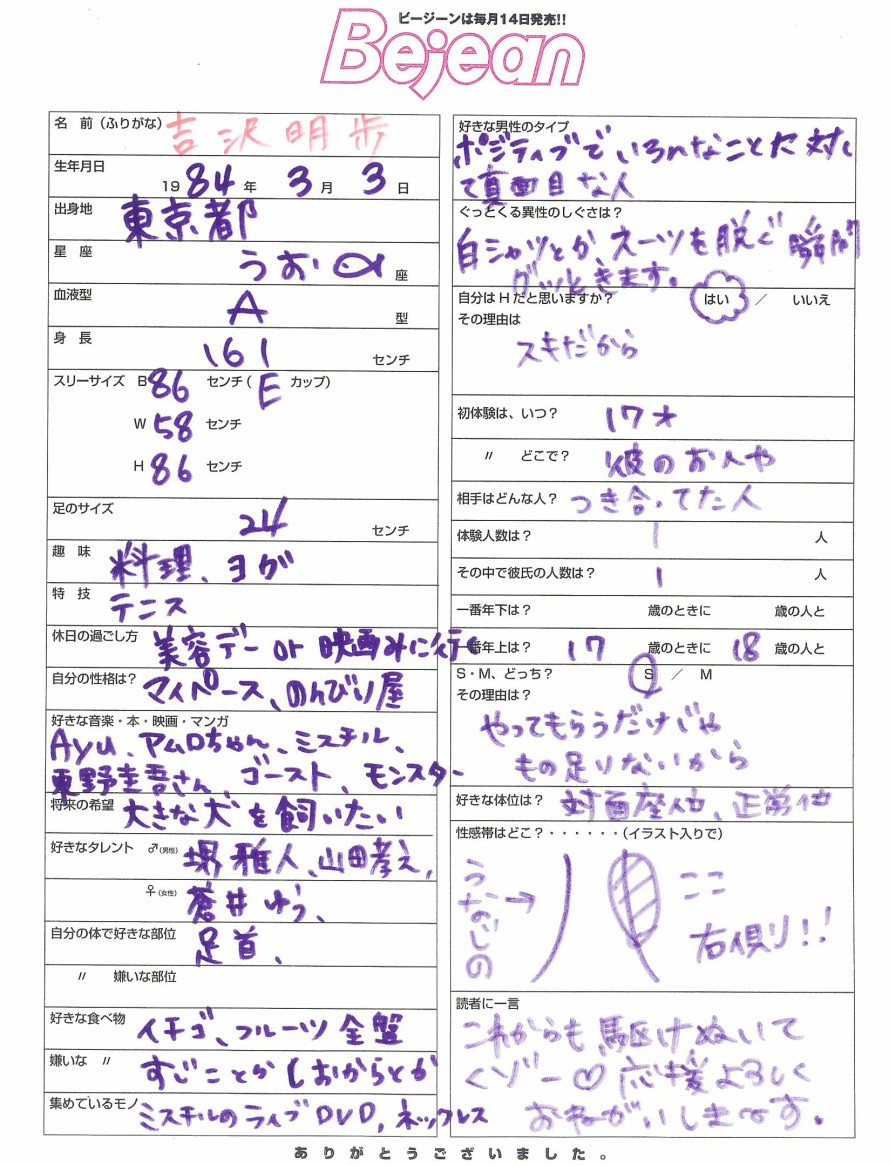 ビージーンは毎月14日発売!!
Bejean
名 前 (ふりがな) 吉沢明歩
生年月日
1984年 3月 3日
出身地 東京都
星 座 うお座
血液型 A 型
身 長 161 センチ
スリーサイズ B 86 センチ( E カップ)
W 58 センチ
H 86 センチ
足のサイズ 24 センチ
趣 味 料理、ヨガ
特 技 テニス
休日の過ごし方 美容デー or 映画みに行く
自分の性格は? マイペース、のんびり屋
好きな音楽・本・映画・マンガ
Ayu、アムロちゃん、ミスチル、
東野圭吾さん、ゴースト、モンスター
将来の希望 大きな犬を飼いたい
好きなタレント ♂(男性) 堺雅人、山田孝之、
♀(女性) 蒼井ゆう、
自分の体で好きな部位 足首、
〃 嫌いな部位
好きな食べ物 イチゴ、フルーツ全盤
嫌いな 〃 すじことかしおからとか
集めているモノ ミスチルのライブDVD, ネックレス
好きな男性のタイプ
ポジティブでいろんなことに対し
て真面目な人
ぐっとくる異性のしぐさは?
白シャツとか、スーツを脱ぐ瞬間
グッときます。
自分はHだと思いますか? はい / いいえ
その理由は
スキだから
初体験は、いつ? 17才
〃 どこで? 彼のお人や
相手はどんな人? つき合ってた人
体験人数は? 1 人
その中で彼氏の人数は? 1 人
一番年下は? 歳のときに 歳の人と
一番年上は? 17 歳のときに 18 歳の人と
S・M、どっち? S / M
その理由は?
やってもらうだけじゃ
もの足りないから
好きな体位は? 対面座位、正常位
性感帯はどこ?・・・・・・(イラスト入りで)
うなじの → ここ
右側り!!
読者に一言
これからも駆けぬいて
くゾー♡応援よろしく
おねがいしまーす。
ありがとうございました。